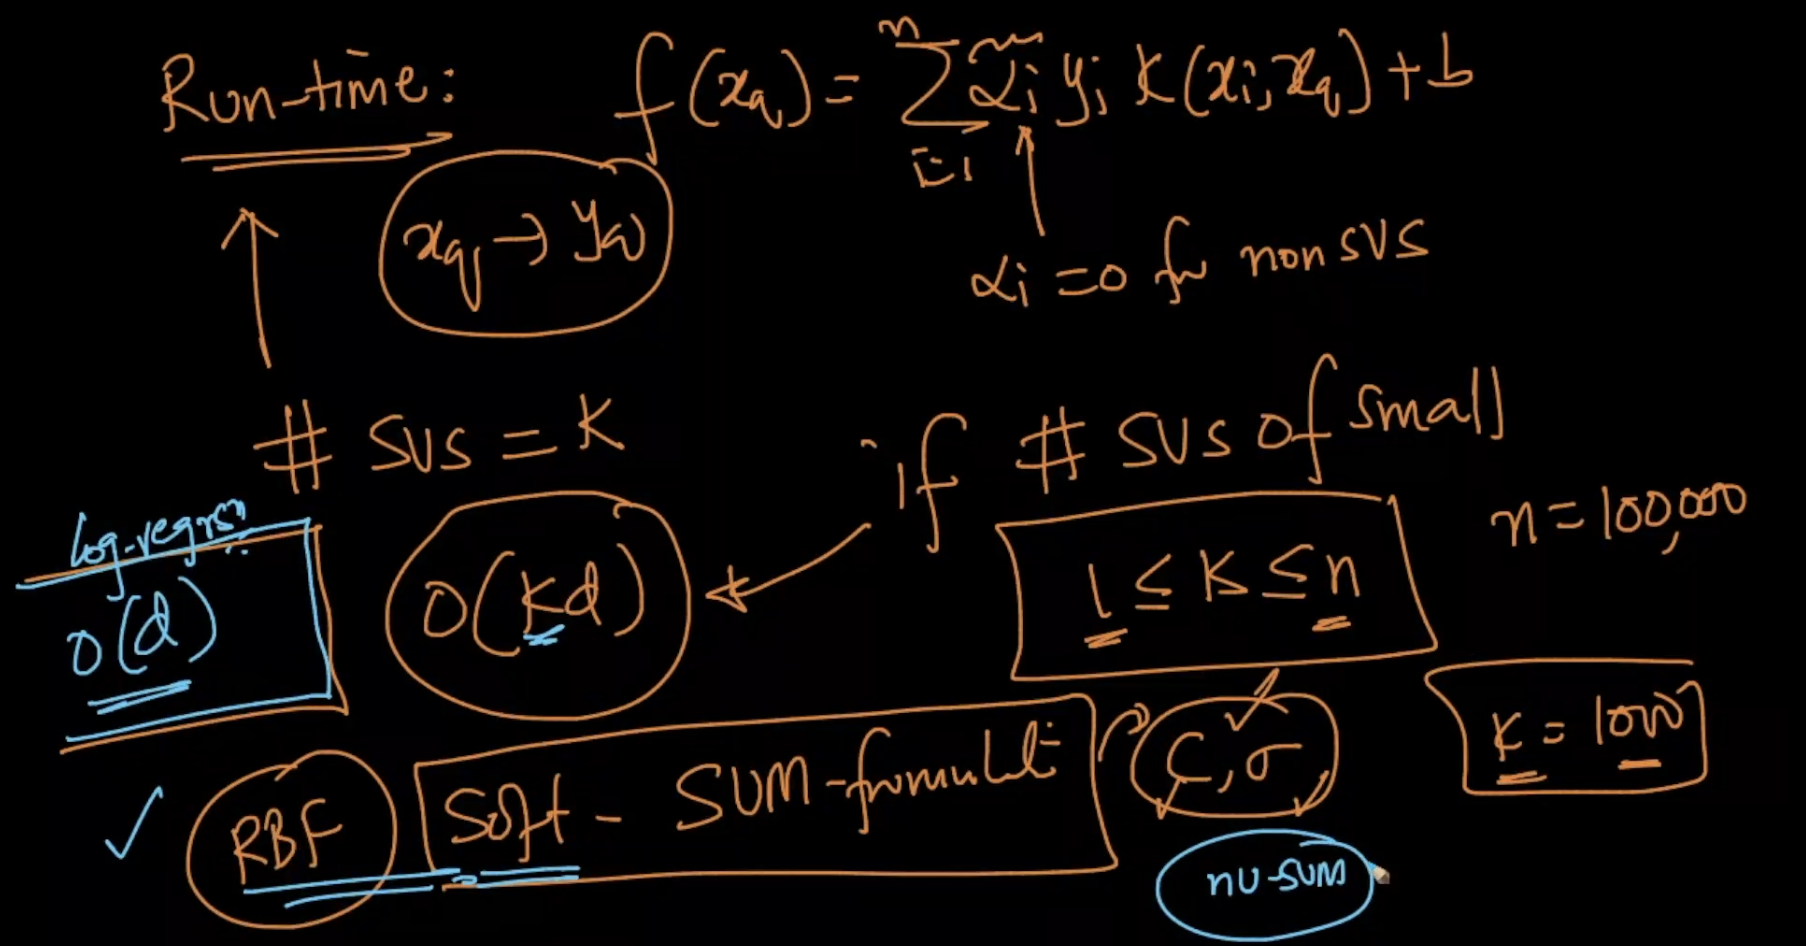 Run-time: f(xq) = n Σ i=1 αi yi K(xi, xq) + b
xq → yq
αi = 0 for non SVs
# SVs = K
if # SVs of small
n = 100,000
log-regrsn
O(d)
O(kd)
1 ≤ K ≤ n
K = 1000
RBF
Soft - SVM-formulat
C, σ
nu-SVM